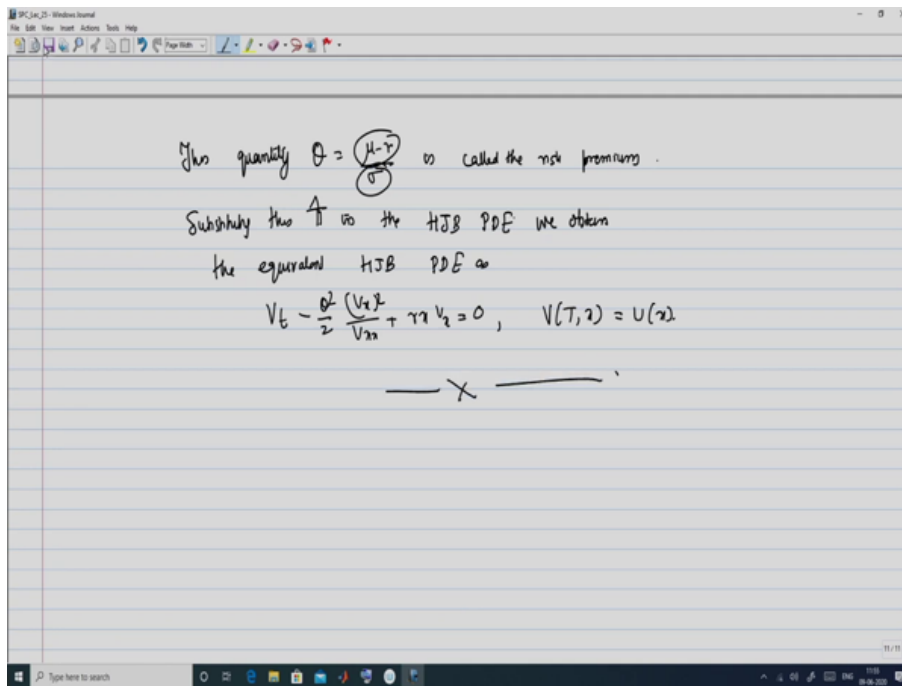 SPC_Lec_25 - Windows Journal
File Edit View Insert Actions Tools Help
Page Width
This quantity θ = (μ-r)/σ is called the risk premium.
Substituting this π̂ in the HJB PDE we obtain
the equivalent HJB PDE as
V_t - θ²/2 (V_x)²/V_xx + rx V_x = 0, V(T,x) = U(x).
X
11/11
Type here to search
ENG
11:55
09-06-2020